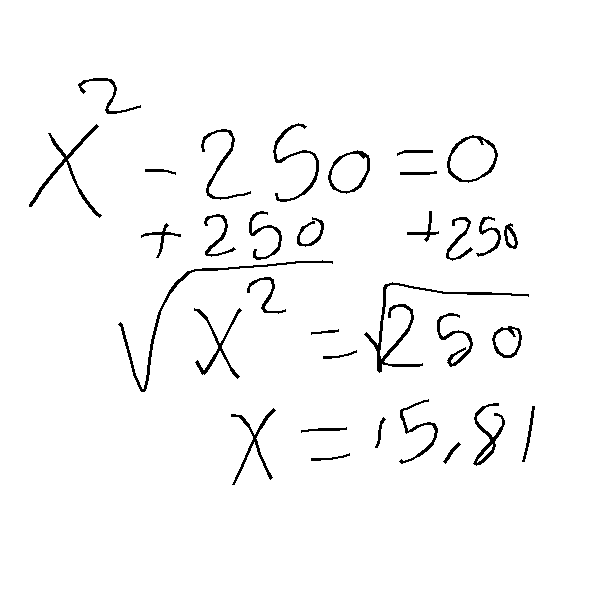 x² - 250 = 0
+ 250 +250
√x² = √250
x = 15,81